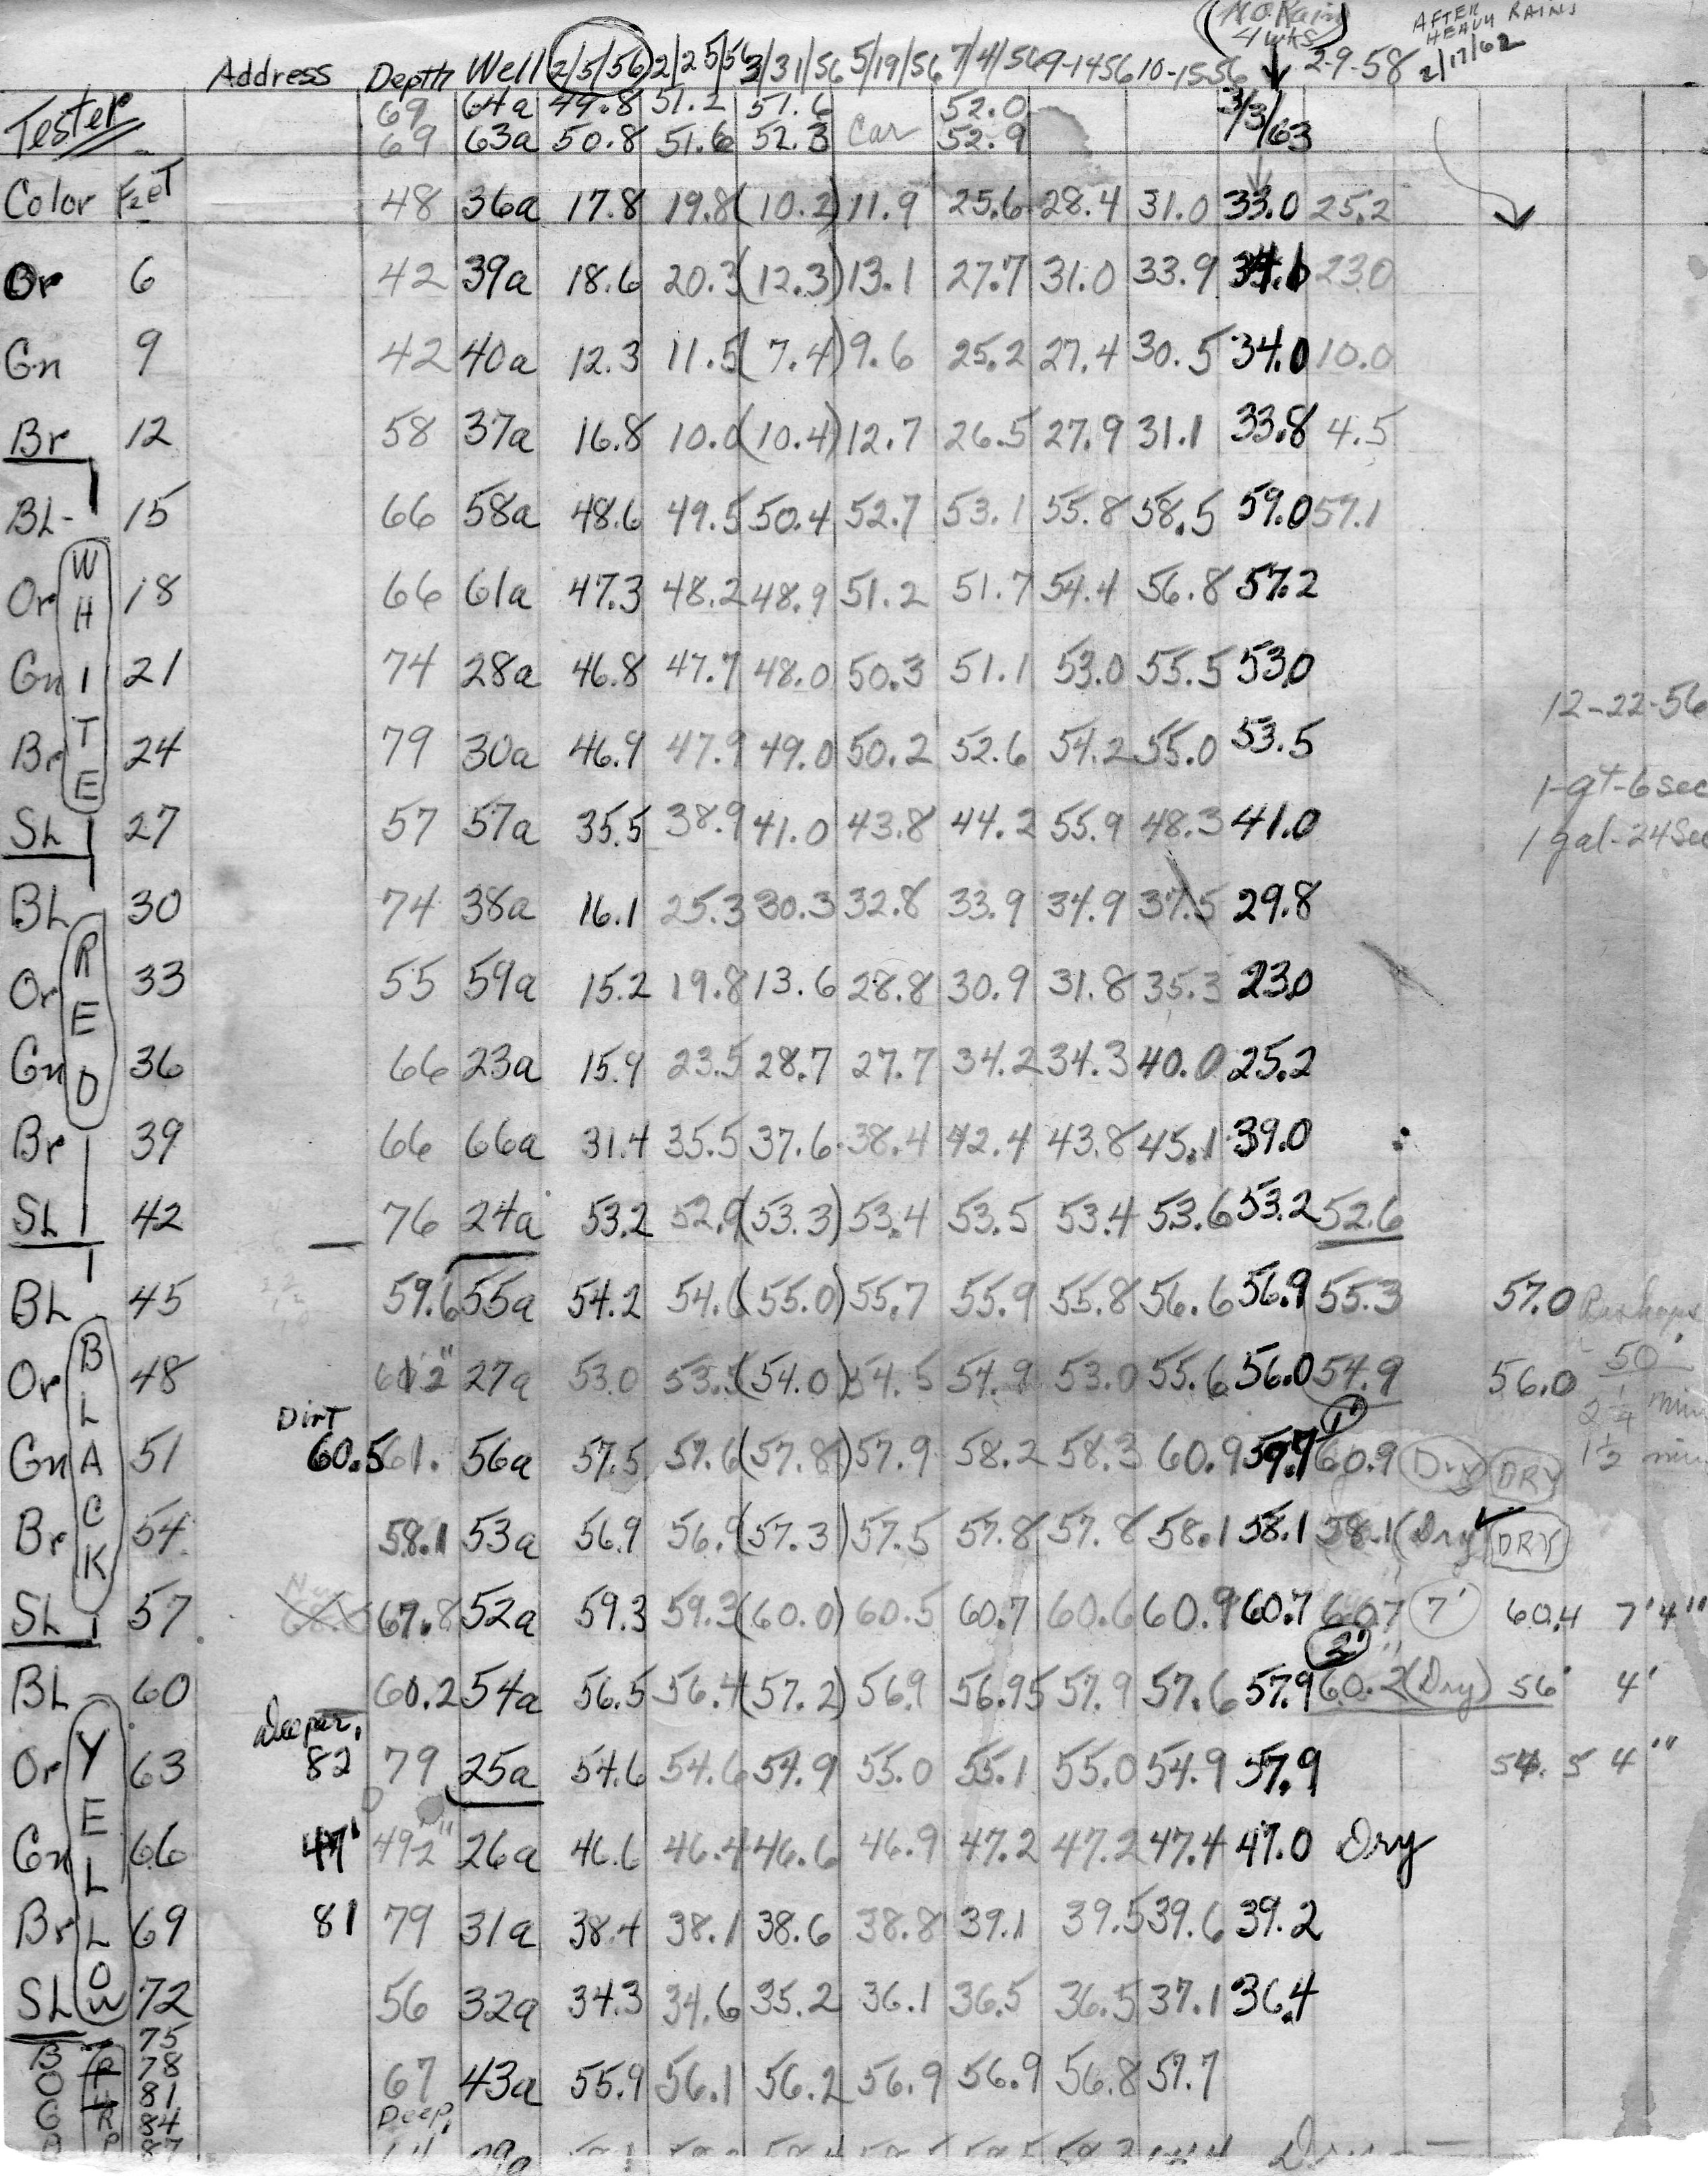 (No Rain 4 wks) AFTER HEAVY RAINS
Address Depth Well 2/5/56 2/25/56 3/31/56 5/19/56 7/4/56 9-1456 10-1556 2-9-58 2/17/62
Tester 69 64a 49.8 51.2 51.6 52.0 3/3/63
69 63a 50.8 51.6 52.3 Car 52.9
Color FEET 48 36a 17.8 19.8 (10.2) 11.9 25.6 28.4 31.0 33.0 25.2
Or 6 42 39a 18.6 20.3 (12.3) 13.1 27.7 31.0 33.9 34.1 23.0
Gn 9 42 40a 12.3 11.5 (7.4) 9.6 25.2 27.4 30.5 34.0 10.0
Br 12 58 37a 16.8 10.0 (10.4) 12.7 26.5 27.9 31.1 33.8 4.5
BL- 15 66 58a 48.6 49.5 50.4 52.7 53.1 55.8 58.5 59.0 57.1
WHITE
Or 18 66 61a 47.3 48.2 48.9 51.2 51.7 54.4 56.8 57.2
Gn 21 74 28a 46.8 47.7 48.0 50.3 51.1 53.0 55.5 53.0
12-22-56
Br 24 79 30a 46.9 47.9 49.0 50.2 52.6 54.2 55.0 53.5
1-qt-6 sec
SL 27 57 57a 35.5 38.9 41.0 43.8 44.2 55.9 48.3 41.0
1 gal-24 Sec
BL 30 74 38a 16.1 25.3 30.3 32.8 33.9 34.9 37.5 29.8
RED
Or 33 55 59a 15.2 19.8 13.6 28.8 30.9 31.8 35.3 23.0
Gn 36 66 23a 15.9 23.5 28.7 27.7 34.2 34.3 40.0 25.2
Br 39 66 66a 31.4 35.5 37.6 38.4 42.4 43.8 45.1 39.0
SL 42 76 24a 53.2 52.9 (53.3) 53.4 53.5 53.4 53.6 53.2 52.6
BL 45 59.6 55a 54.2 54.6 (55.0) 55.7 55.9 55.8 56.6 56.9 55.3 57.0
BLACK
Or 48 27a 53.0 53.5 (54.0) 54.5 54.9 53.0 55.6 56.0 54.9 56.0 50'
2 1/4 min
Dirt 1'
Gn 51 60.5 61. 56a 57.5 57.6 (57.8) 57.9 58.2 58.3 60.9 59.7 60.9 Dry DRY 1 1/2 min
Br 54 58.1 53a 56.9 56.9 (57.3) 57.5 57.8 57.8 58.1 58.1 58.1 (Dry) DRY
SL 57 67.8 52a 59.3 59.3 (60.0) 60.5 60.7 60.6 60.9 60.7 60.7 7' 60.4 7'4"
2'
BL 60 60.2 54a 56.5 56.4 (57.2) 56.9 56.95 57.9 57.6 57.9 60.2 (Dry) 56' 4'
Deeper.
YELLOW
Or 63 82 79 25a 54.6 54.6 54.9 55.0 55.1 55.0 54.9 57.9 54.5 4"'
Gn 66 47' 49 2" 26a 46.6 46.4 46.6 46.9 47.2 47.2 47.4 47.0 Dry
Br 69 81 79 31a 38.4 38.1 38.6 38.8 39.1 39.5 39.6 39.2
SL 72 56 32a 34.3 34.6 35.2 36.1 36.5 36.5 37.1 36.4
75
B 78
O 81 67 43a 55.9 56.1 56.2 56.9 56.9 56.8 57.7
G 84 Deep
87